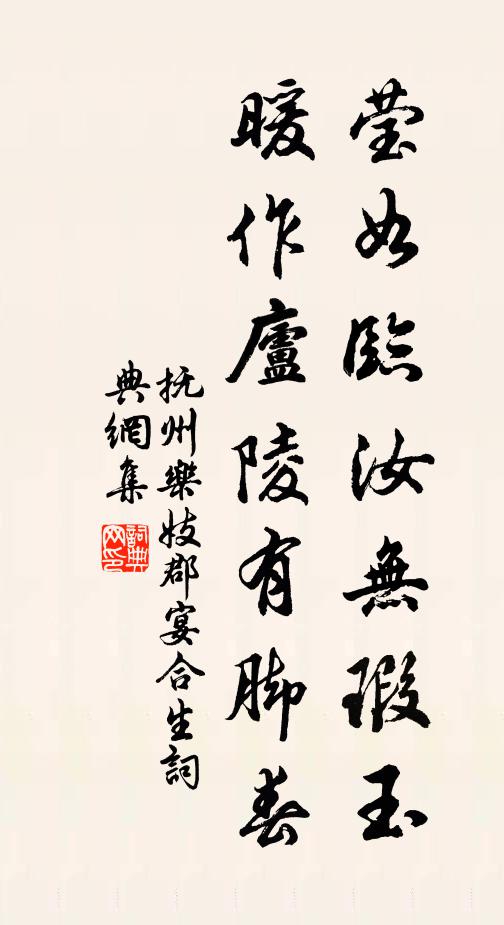 莹如臨汝無瑕玉
暖作廬陵有脚春
抚州樂妓郡宴合生詞
典網集
詞典网印